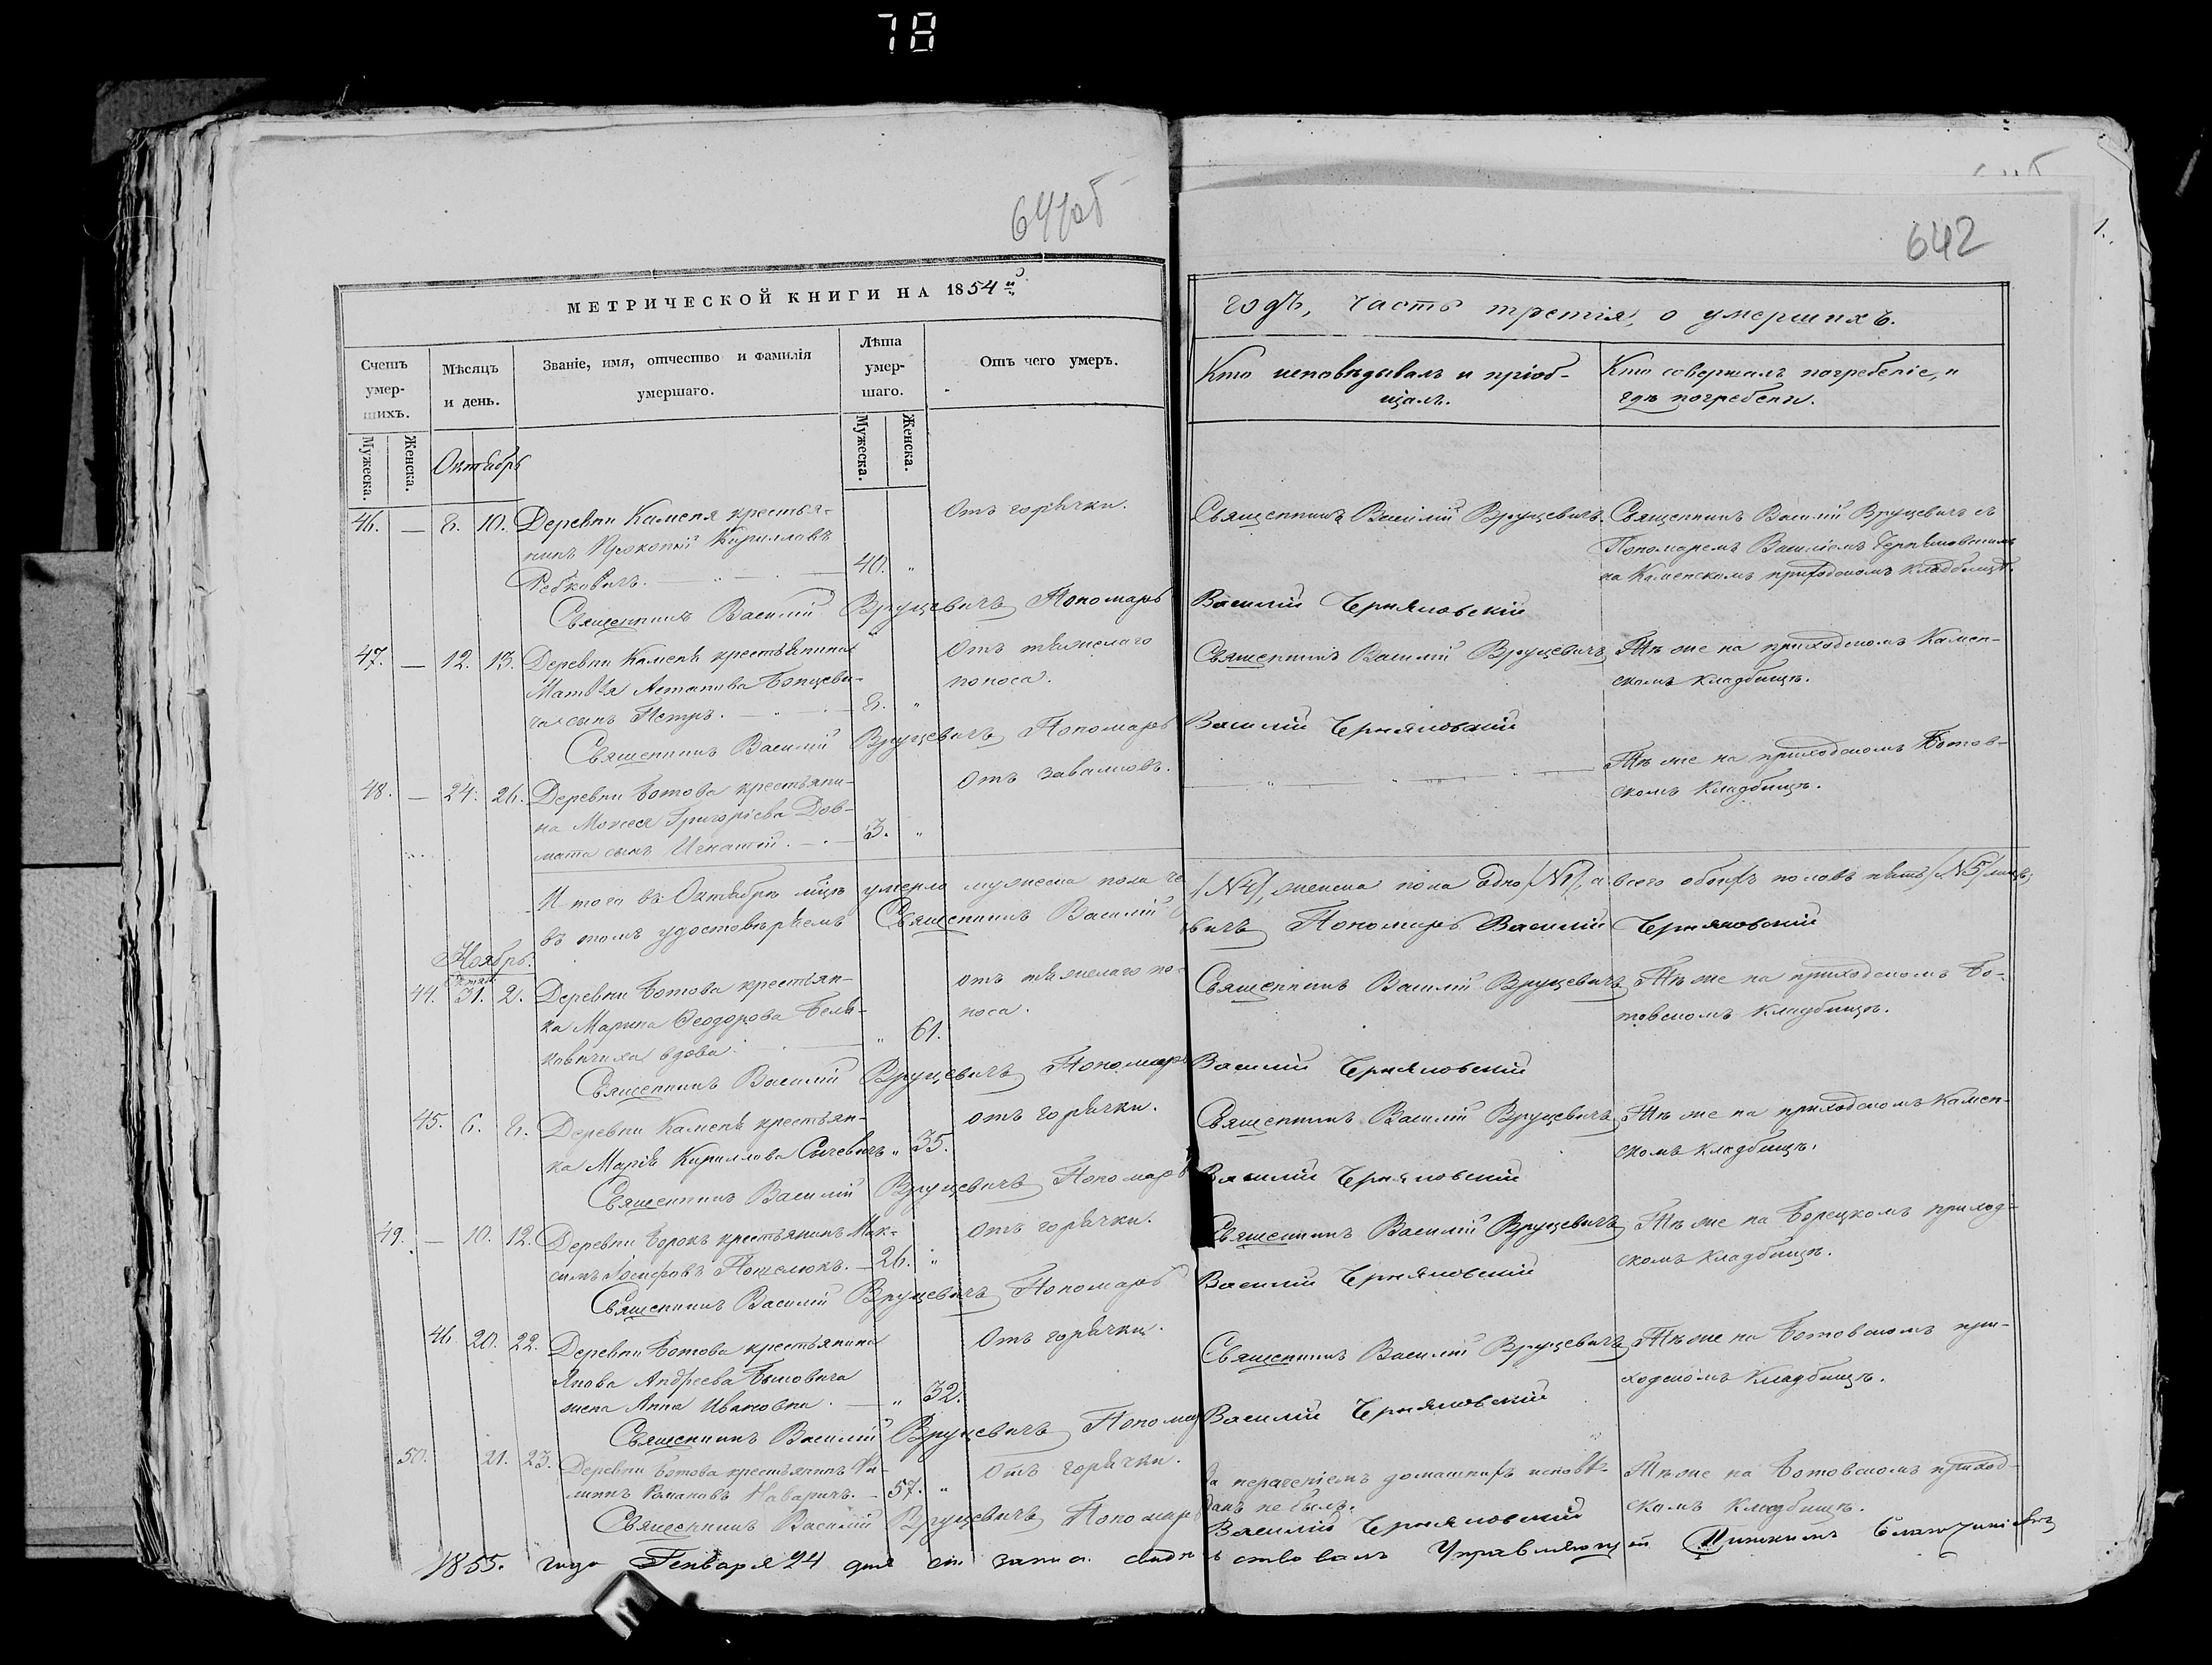 78
641об
642
МЕТРИЧЕСКОЙ КНИГИ НА 1854й
годъ, часть третія, о умершихъ.
Счетъ умер-шихъ.
Мѣсяцъ и день.
Званіе, имя, отчество и фамилія умершаго.
Лѣта умер-шаго.
Отъ чего умеръ.
Кто исповѣдывалъ и пріоб-
щалъ.
Кто совершалъ погребеніе, и
гдѣ погребены.
Мужеска.
Женска.
Октябрь
Мужеска.
Женска.
46. — 8. 10. Деревни Каменя крестья-
нинъ Прокопій Кирилловъ
Ребковичъ. 40. "
Отъ горячки.
Священникъ Василій Вруцевичъ.
Священникъ Василій Вруцевичъ съ
Пономаремъ Василіемъ Черняховскимъ
на Каменскомъ приходскомъ кладбищѣ.
Священникъ Василій Вруцевичъ Пономарь Василій Черняховскій
47. — 12. 13. Деревни Каменя крестьянина
Матвѣя
сынъ Петръ. 8. "
Отъ тяжелаго
поноса.
Священникъ Василій Вруцевичъ
Тѣ же на приходскомъ Камен-
скомъ кладбищѣ.
Священникъ Василій Вруцевичъ Пономарь Василій Черняховскій
48. — 24. 26. Деревни Ботова крестьяни-
на Моисея Григоріева Дов-
мата сынъ Игнатій. 3. "
Отъ завалковъ.
Тѣ же на приходскомъ Ботов-
скомъ кладбищѣ.
Итого въ Октябрѣ мцѣ умерло мужеска пола /№4/, женска пола одно /№1/, а всего обоихъ половъ пять /№5/
въ томъ удостовѣряемъ Священникъ Василій Пономарь Василій Черняховскій
Ноябрь.
44. 31. 2. Деревни Ботова крестьян-
ка Марина Ѳеодорова Бель-
ковичиха вдова " 61.
отъ тяжелаго по-
носа.
Священникъ Василій Вруцевичъ
Тѣ же на приходскомъ Бо-
товскомъ кладбищѣ.
Священникъ Василій Вруцевичъ Пономарь Василій Черняховскій
45. 6. 8. Деревни Каменя крестьян-
ка Марія Кириллова Сичевичъ " 35.
отъ горячки.
Священникъ Василій Вруцевичъ
Тѣ же на приходскомъ Камен-
скомъ кладбищѣ.
Священникъ Василій Вруцевичъ Пономарь Василій Черняховскій
49. — 10. 12. Деревни Борокъ крестьянинъ Мак-
симъ Іосифовъ Поцелюкъ. 26. "
Отъ горячки.
Священникъ Василій Вруцевичъ
Тѣ же на Борецкомъ приход-
скомъ кладбищѣ.
Священникъ Василій Вруцевичъ Пономарь Василій Черняховскій
46. 20. 22. Деревни Ботова крестьянина
Якова Андреева
жена Анна Ивановна. " 32.
Отъ горячки.
Священникъ Василій Вруцевичъ
Тѣ же на Ботовскомъ при-
ходскомъ кладбищѣ.
Священникъ Василій Вруцевичъ Пономарь Василій Черняховскій
50. 21. 23. Деревни Ботова крестьянинъ Фи-
липпъ Романовъ 57. "
Отъ горячки.
За нераченіемъ домашнихъ исповѣ-
данъ не былъ.
Тѣ же на Ботовскомъ приход-
скомъ кладбищѣ.
Священникъ Василій Вруцевичъ Пономарь Василій Черняховскій
1855. года Генваря 24 дня